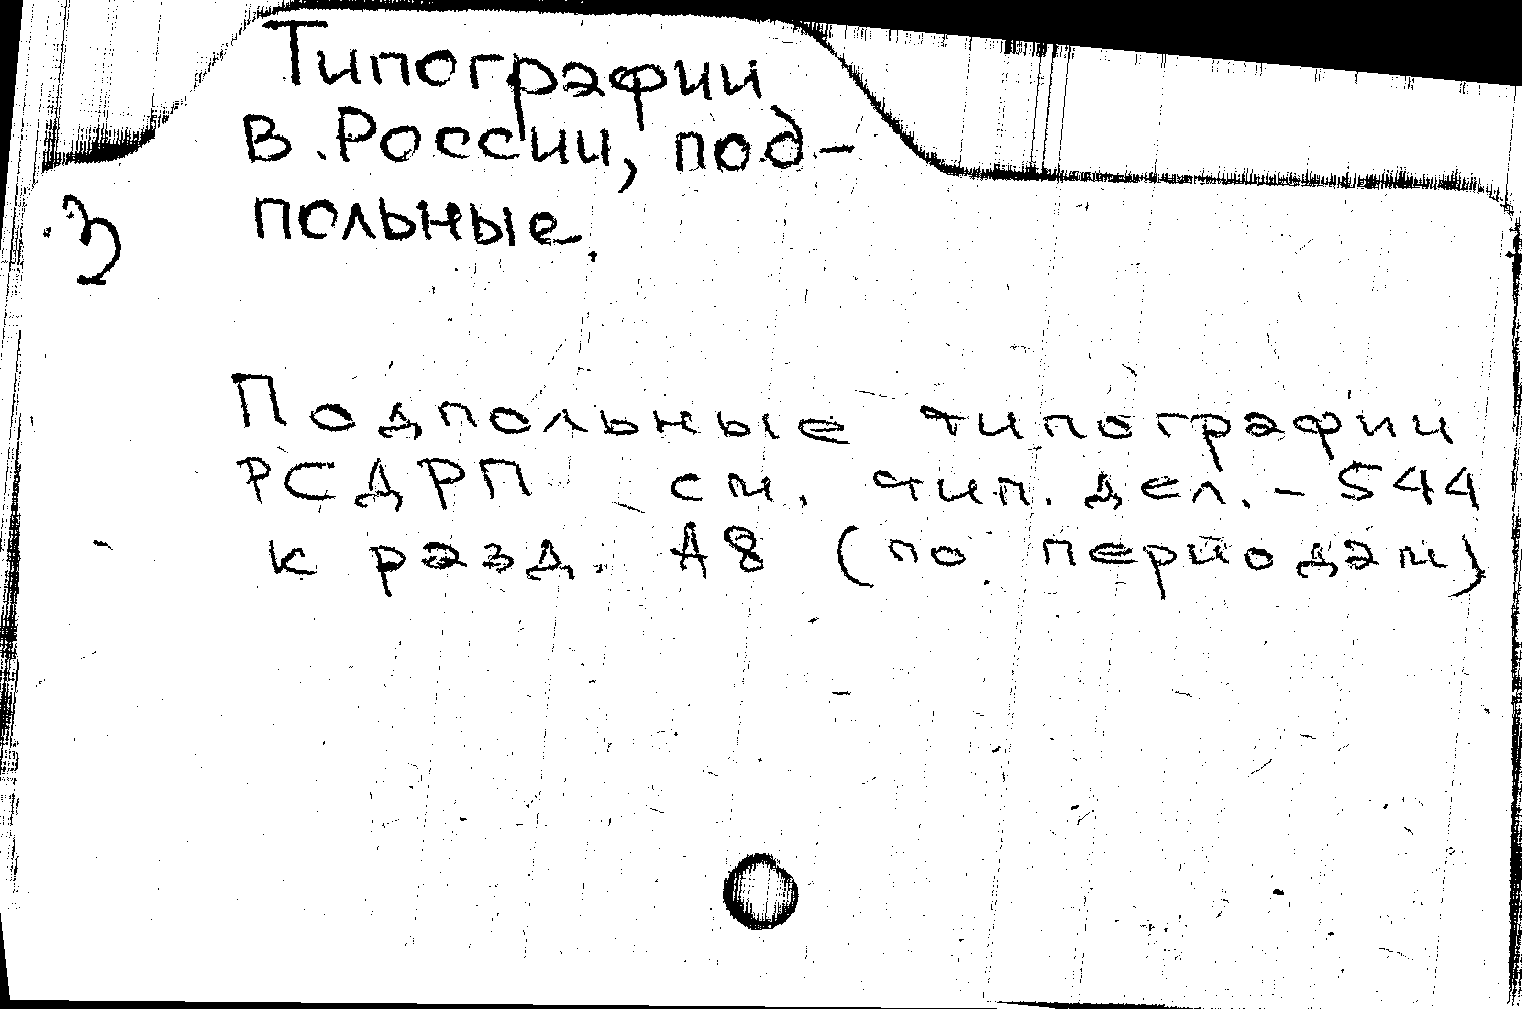 Типографии
в России, под-
польные.
3
Подпольные типографии
РСДРП см. тип. дел. - 544
к разд. А8 (по периодам)